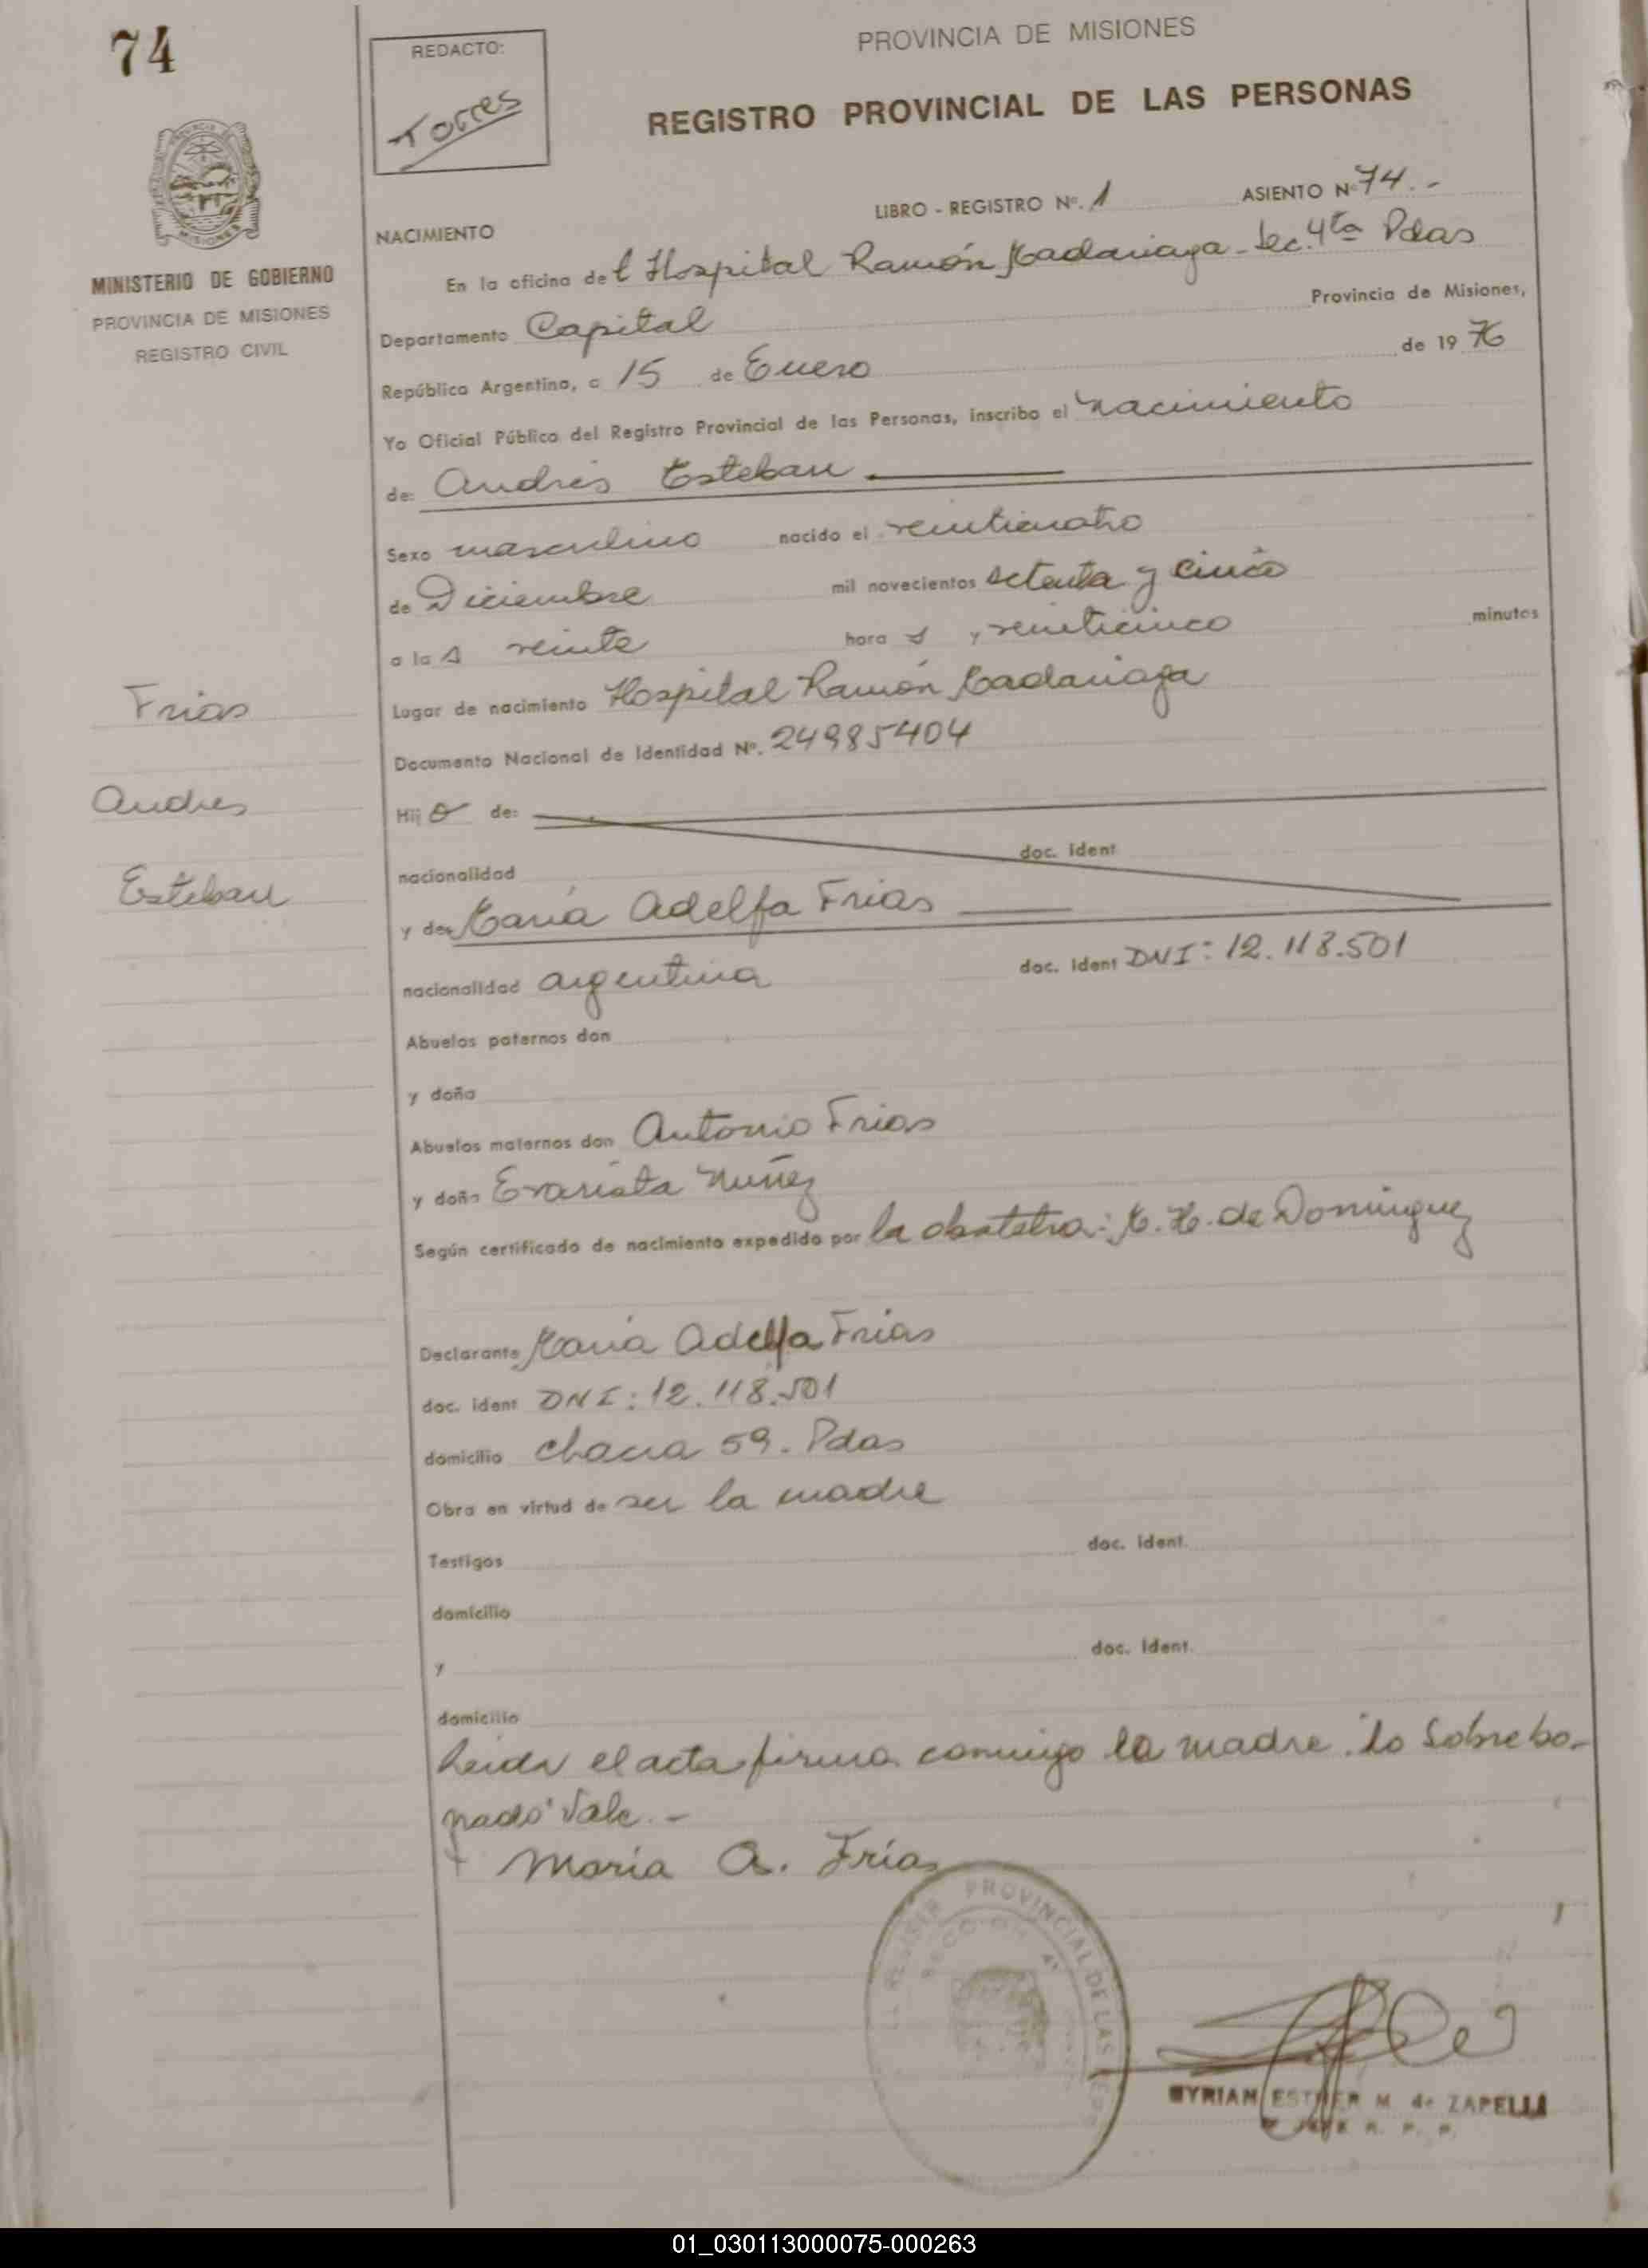 74
REDACTO:
Torres
PROVINCIA DE MISIONES
REGISTRO PROVINCIAL DE LAS PERSONAS
MINISTERIO DE GOBIERNO
PROVINCIA DE MISIONES
REGISTRO CIVIL
LIBRO - REGISTRO Nº. 1 ASIENTO Nº 74.-
NACIMIENTO
En la oficina del Hospital Ramón Madariaga - Sec. 4ta Pdas
Departamento Capital Provincia de Misiones,
República Argentina, a 15 de Enero de 1976
Yo Oficial Público del Registro Provincial de las Personas, inscribo el nacimiento
de: Andrés Esteban
Sexo masculino nacido el veinticuatro
de Diciembre mil novecientos setenta y cinco
a las veinte horas y veinticinco minutos
Lugar de nacimiento Hospital Ramón Madariaga
Documento Nacional de Identidad Nº. 24985404
Frias
Andres
Esteban
Hijo de:
nacionalidad doc. ident
y de María Adelfa Frias
nacionalidad argentina doc. ident DNI: 12.118.501
Abuelos paternos don
y doña
Abuelos maternos don Antonio Frias
y doña Evarista Nuñez
Según certificado de nacimiento expedido por la obstetra: M. H. de Dominguez
Declarante María Adelfa Frias
doc. ident DNI: 12.118.501
domicilio chacra 59. Pdas
Obra en virtud de ser la madre
Testigos doc. ident.
domicilio
y doc. ident.
domicilio
Leida el acta firma conmigo la madre. lo Sobrebo-
rrado Vale.-
María A. Frías
PROVINCIAL DE LAS
MYRIAN ESTHER M. de ZAPELLA
01_030113000075-000263